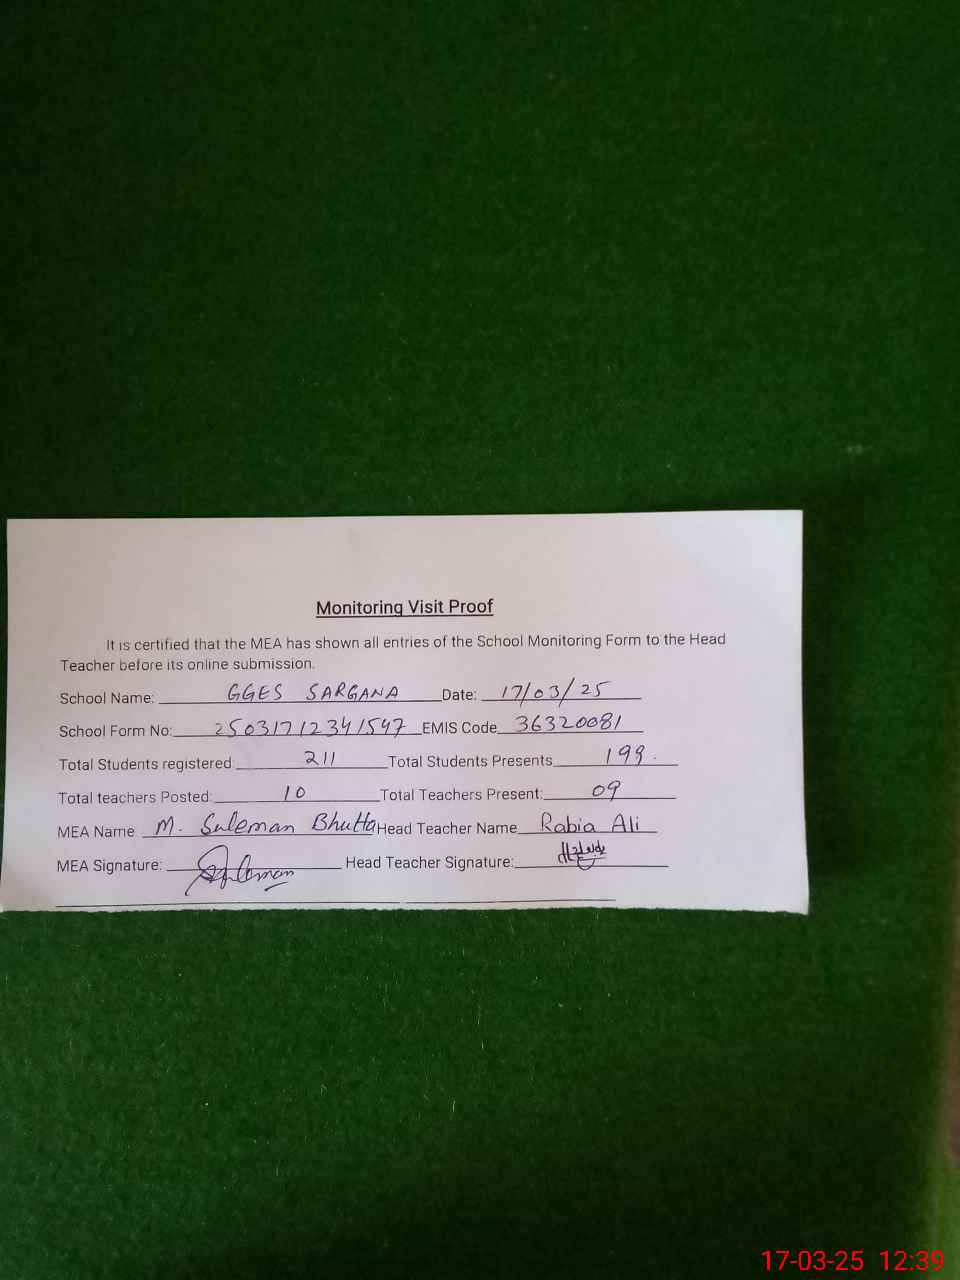 Monitoring Visit Proof
It is certified that the MEA has shown all entries of the School Monitoring Form to the Head
Teacher before its online submission.
School Name: GGES SARGANA Date: 17/03/25
School Form No: 2503171234 1547 EMIS Code 36320081
Total Students registered: 211 Total Students Presents 199.
Total teachers Posted: 10 Total Teachers Present: 09
MEA Name M. Suleman Bhutta Head Teacher Name Rabia Ali
MEA Signature: Suleman Head Teacher Signature:
17-03-25 12:39